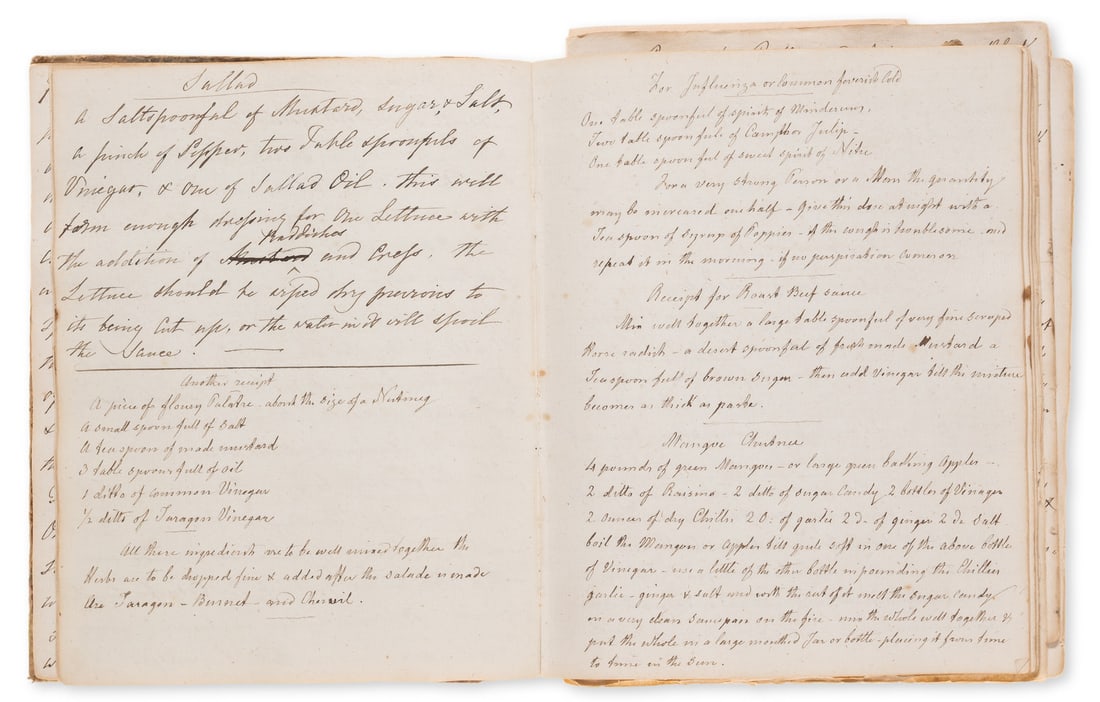 Sallad
A Saltspoonful of Mustard, Sugar, & Salt,
a pinch of Pepper, two Table spoonfuls of
Vinegar, & one of Sallad Oil. this will
form enough dressing for one Lettuce with
Raddishes
the addition of and Cress, the
Lettuce should be wiped dry previous to
its being Cut up, or the water in it will spoil
the Sauce.
Another receipt
A piece of floury Patatoe about the size of a Nutmeg
A small spoon full of salt
A tea spoon of made mustard
3 table spoons full of oil
1 ditto of common Vinegar
½ ditto of Taragon Vinegar
All these ingredients are to be well mixed together the
Herbs are to be chopped fine & added after the salade is made
Are Taragon - Burnet - and Chervil.
For Influenza or Common feverish Cold
One table spoonful of spirit of Mindererus,
Two table spoonfuls of Camphor Julip -
One table spoonful of sweet spirit of Nitre
For a very strong Person or a Man the quantity
may be increased one half - Give this dose at night with a
Tea spoon of syrup of Poppies - if the cough is troublesome - and
repeat it in the morning - if no perspiration comes on
Receipt for Roast Beef sauce
Mix well together a large table spoonful of very fine scraped
Horse radish - a desert spoonful of fresh made Mustard a
Tea spoon full of brown sugar - then add vinegar till the mixture
becomes as thick as paste.
Mangoe Chutnee
4 pounds of green Mangoes - or large green baking Apples -
2 ditto of Raisins - 2 ditto of sugar Candy 2 bottles of Vinager
2 ounces of dry Chillis 2 O: of garlic 2 do of ginger 2 do salt
boil the Mangoes or Apples till quite soft in one of the above bottles
of Vinegar - use a little of the other bottle in pounding the Chillies
garlic - ginger & salt and with the rest of it melt the sugar Candy
in a very clean saucepan on the fire - mix the whole well together &
put the whole in a large mouthed Jar or bottle - placing it from time
to time in the Sun.